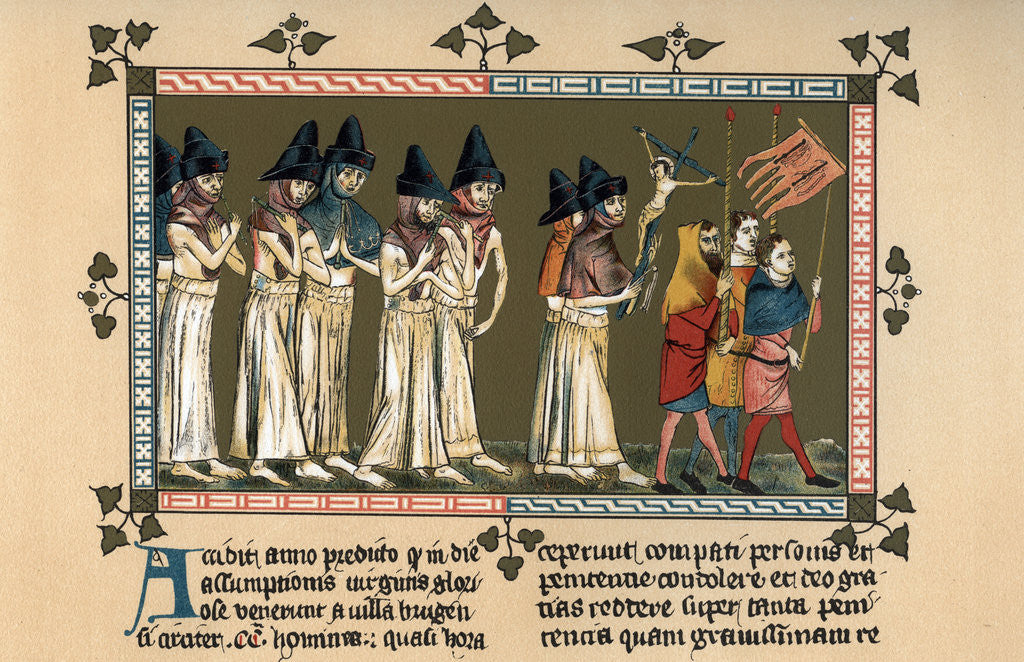 Accidit anno predicto q in die
assumptionis uirginis glori
ose venerunt a uilla brugen
si circiter .CC. homines: quasi hora
ceperunt compati personis et
penitencie condolere et deo gra
tias reddere super tanta peni
tencia quam grauissimam re